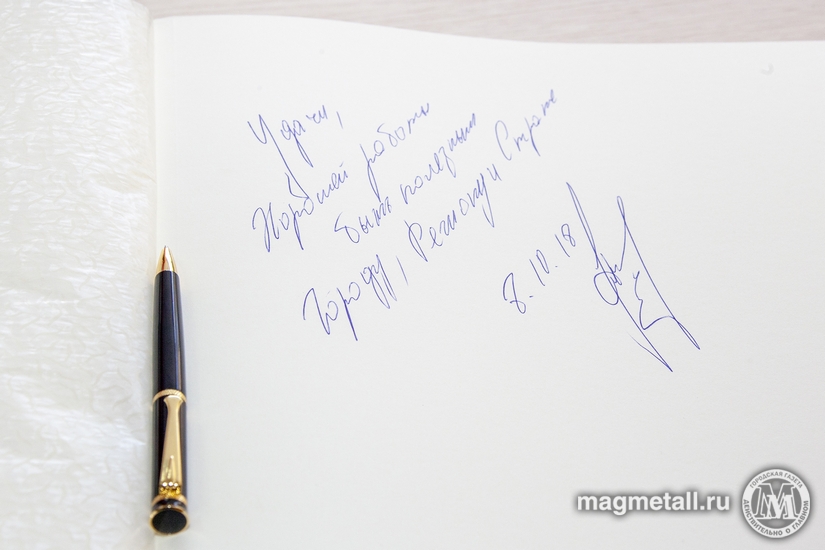 Удачи,
Хорошей работы
Быть полезным
Городу, Региону и Стране
8.10.18
magmetall.ru
ГОРОДСКАЯ ГАЗЕТА
ММ
ДЕЙСТВИТЕЛЬНО О ГЛАВНОМ